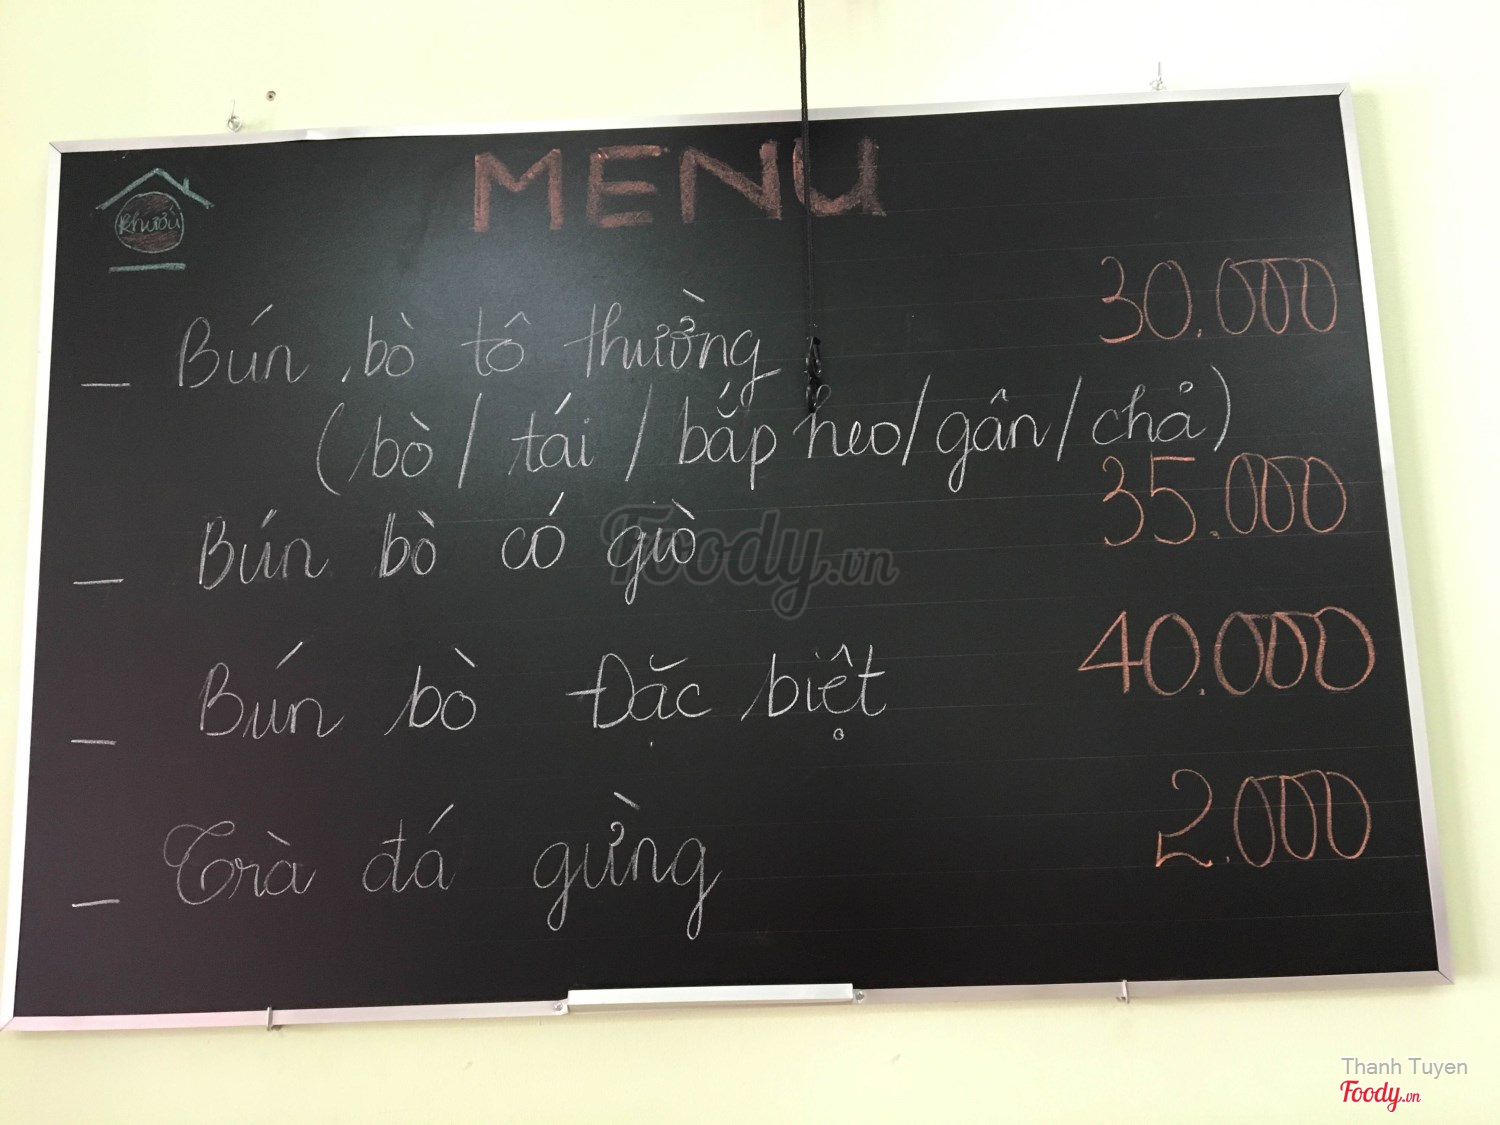 MENU
Khướu
_ Bún bò tô thường 30.000
(bò / tái / bắp heo / gân / chả)
_ Bún bò có giò 35.000
_ Bún bò Đặc biệt 40.000
_ Trà đá gừng 2.000
Foody.vn
Thanh Tuyen
Foody.vn